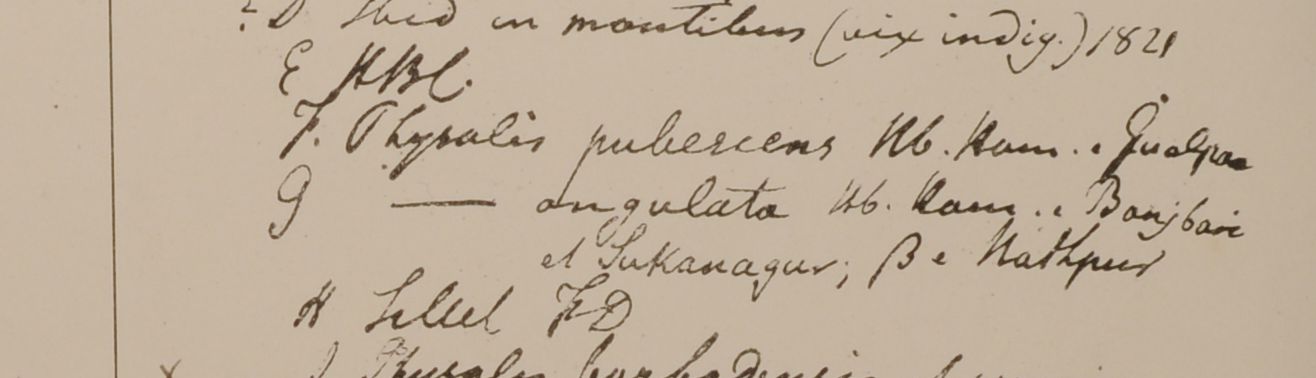 ? D Ibid in montibus (vix indig.) 1821
E HBC.
F. Physalis pubescens Hb. Ham. e Gualpar
G — angulata Hb. Ham. e Banjbari
et Sukanagur; β e Nathpur
H
Physalis barbadensis